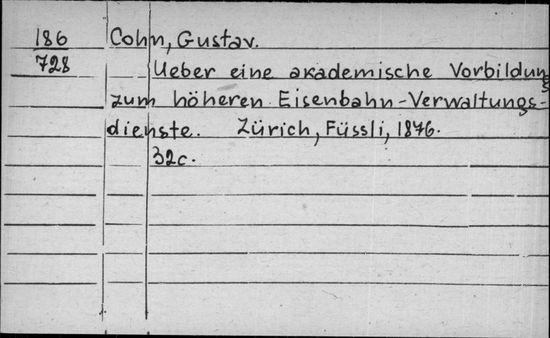 186 Cohn, Gustav.
728 Ueber eine akademische Vorbildung
zum höheren Eisenbahn-Verwaltungs-
dienste. Zürich, Füssli, 1876.
32c.